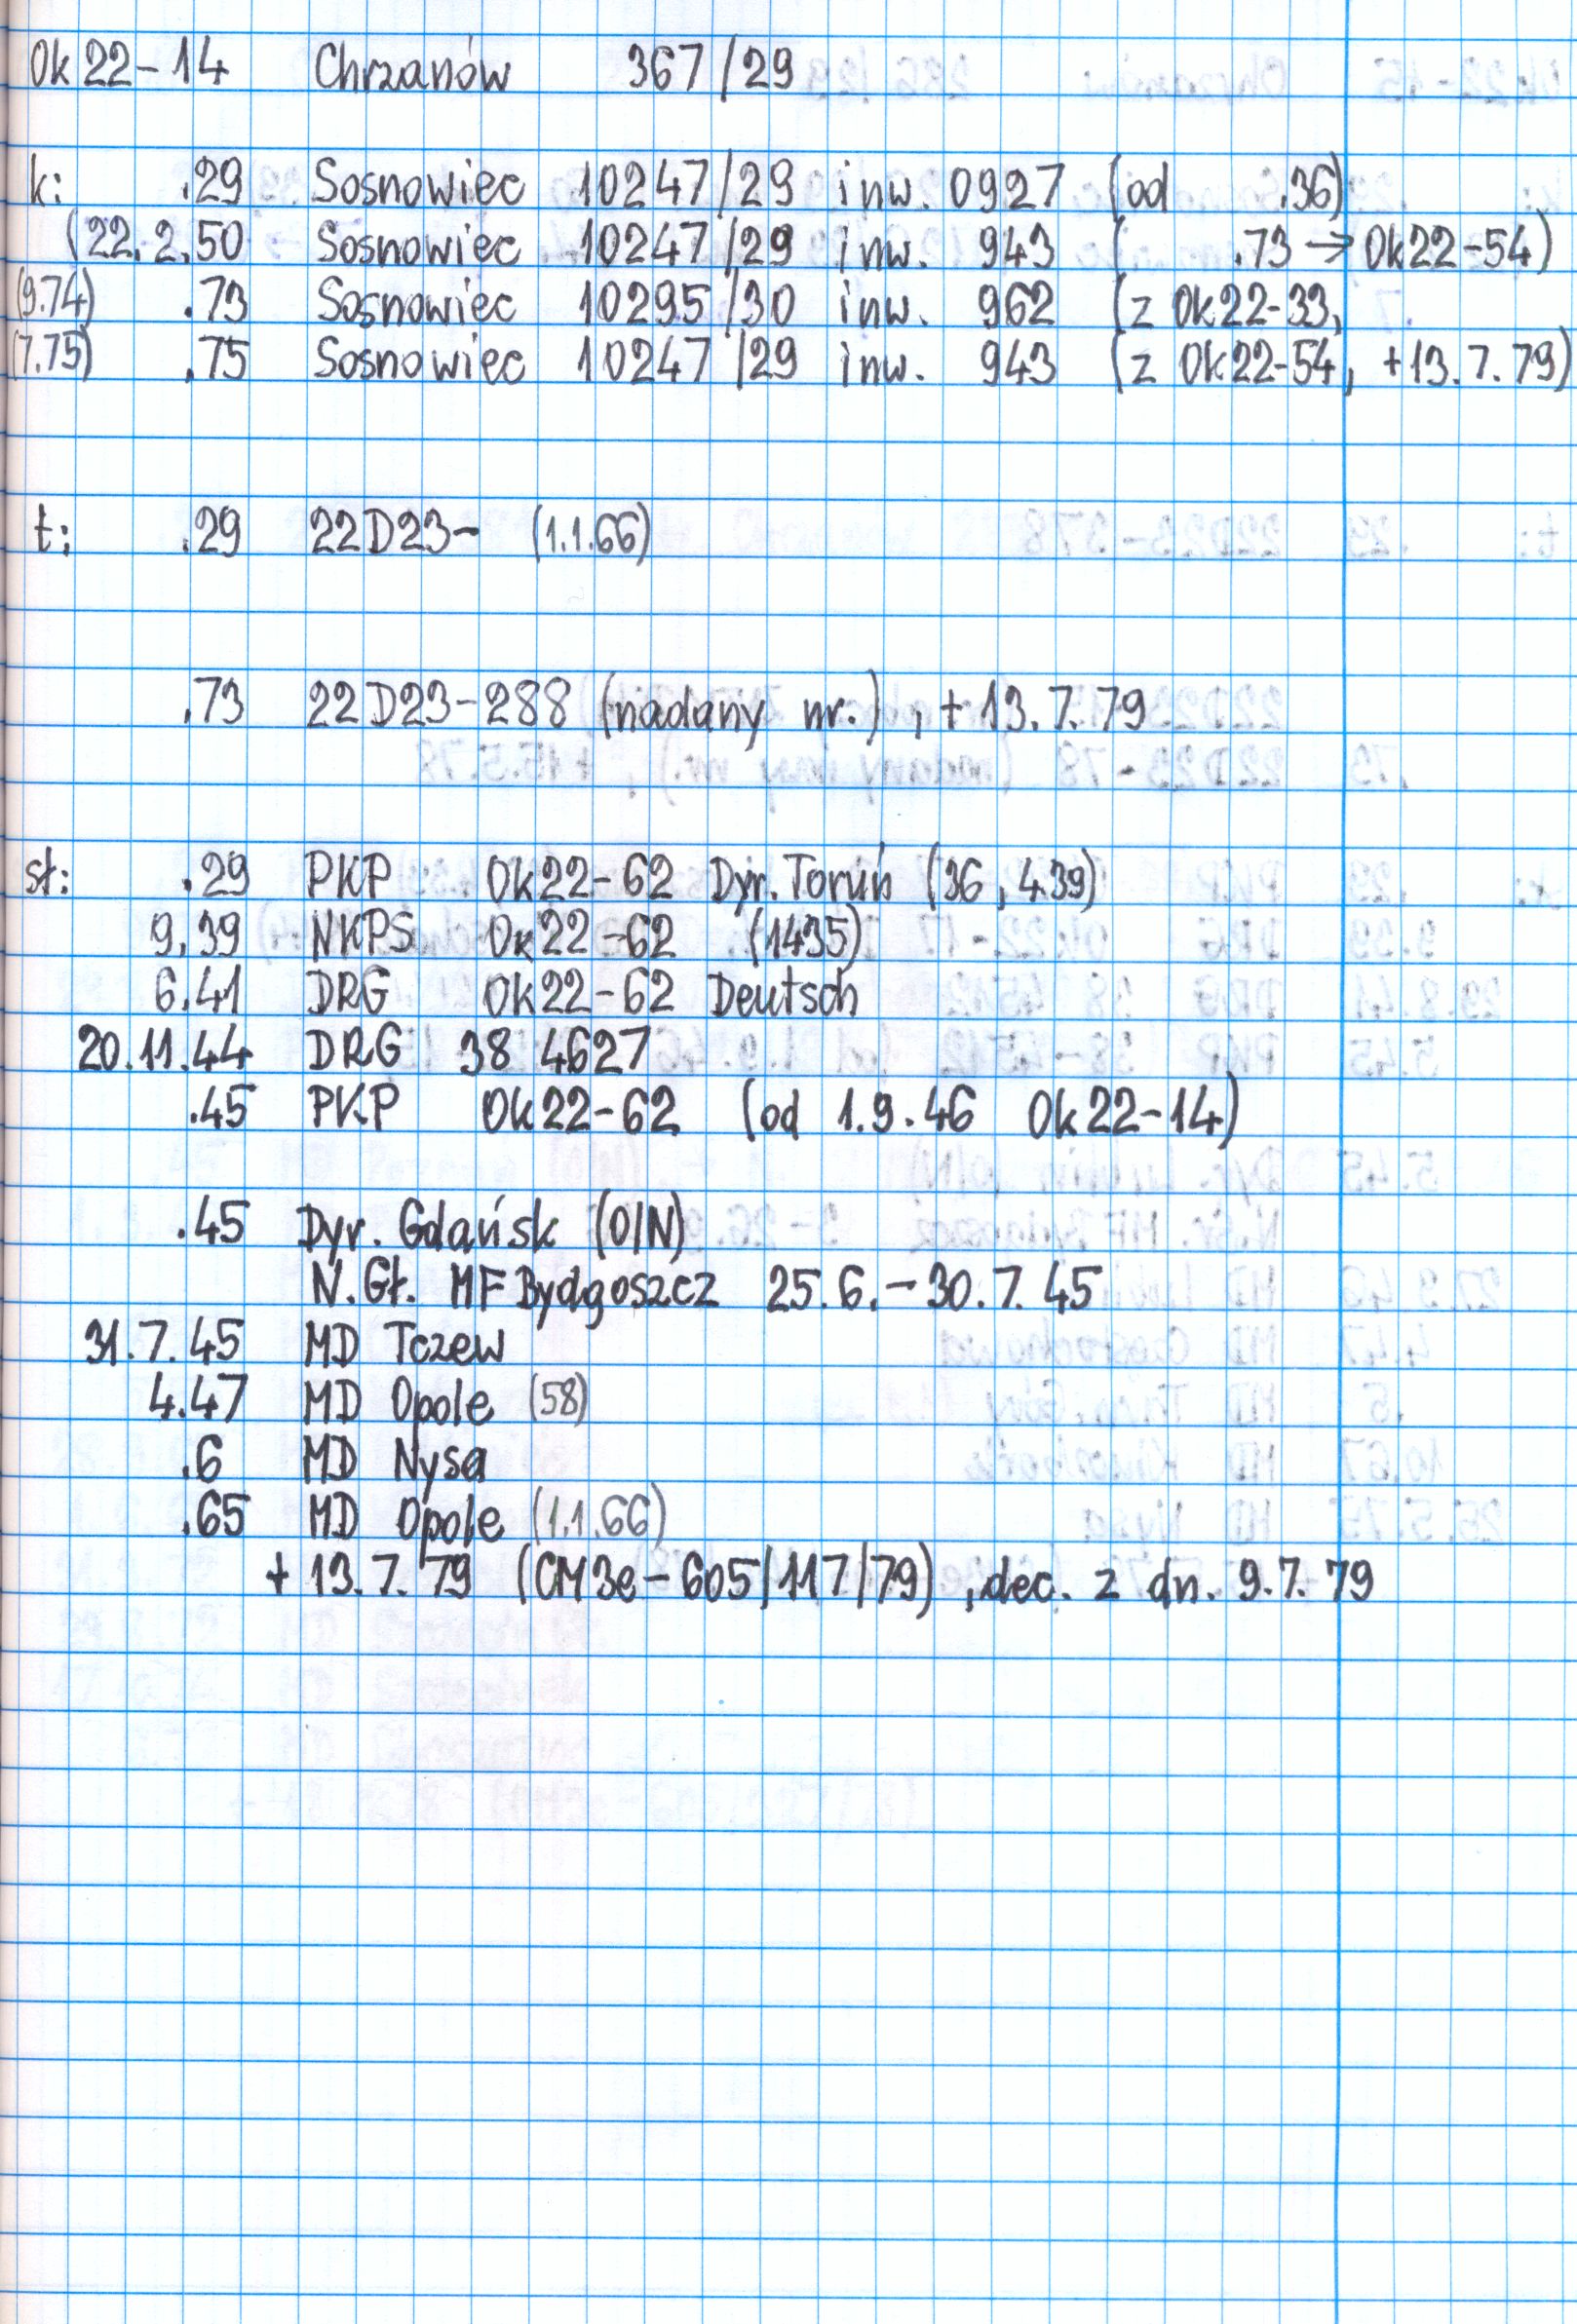 Ok22-14 Chrzanów 367/29
k: .29 Sosnowiec 10247/29 inw. 0927 (od .36)
(22.2.50 Sosnowiec 10247/29 inw. 943 ( .73 → Ok22-54)
(9.74) .73 Sosnowiec 10295/30 inw. 962 (z Ok22-33,
(7.75) .75 Sosnowiec 10247/29 inw. 943 (z Ok22-54, +13.7.79)
t: .29 22D23- (1.1.66)
.73 22D23-288 (nadany nr.), +13.7.79
sł: .29 PKP Ok22-62 Dyr. Toruń (36, 4.39)
9.39 NKPS Ok22-62 (1435)
6.41 DRG Ok22-62 Deutsch
20.11.44 DRG 38 4627
.45 PKP Ok22-62 (od 1.9.46 Ok22-14)
.45 Dyr. Gdańsk (O/N)
N.Gł. MF Bydgoszcz 25.6.-30.7.45
31.7.45 MD Tczew
4.47 MD Opole (58)
.6 MD Nysa
.65 MD Opole (1.1.66)
+13.7.79 (CM3e-605/117/79), dec. z dn. 9.7.79